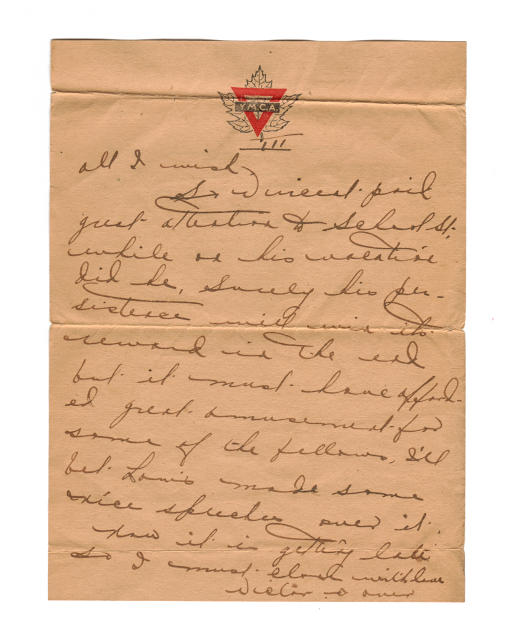 Y.M.C.A.
III
all I wish
So Vincent paid
great attention to School St.
while on his vacation
did he, surely his per-
sistence will win its
reward in the end
but it must have afford-
ed great amusement for
some of the fellows, I'll
bet Louis made some
nice speeches over it.
Now it is getting late
so I must close with love
Victor over